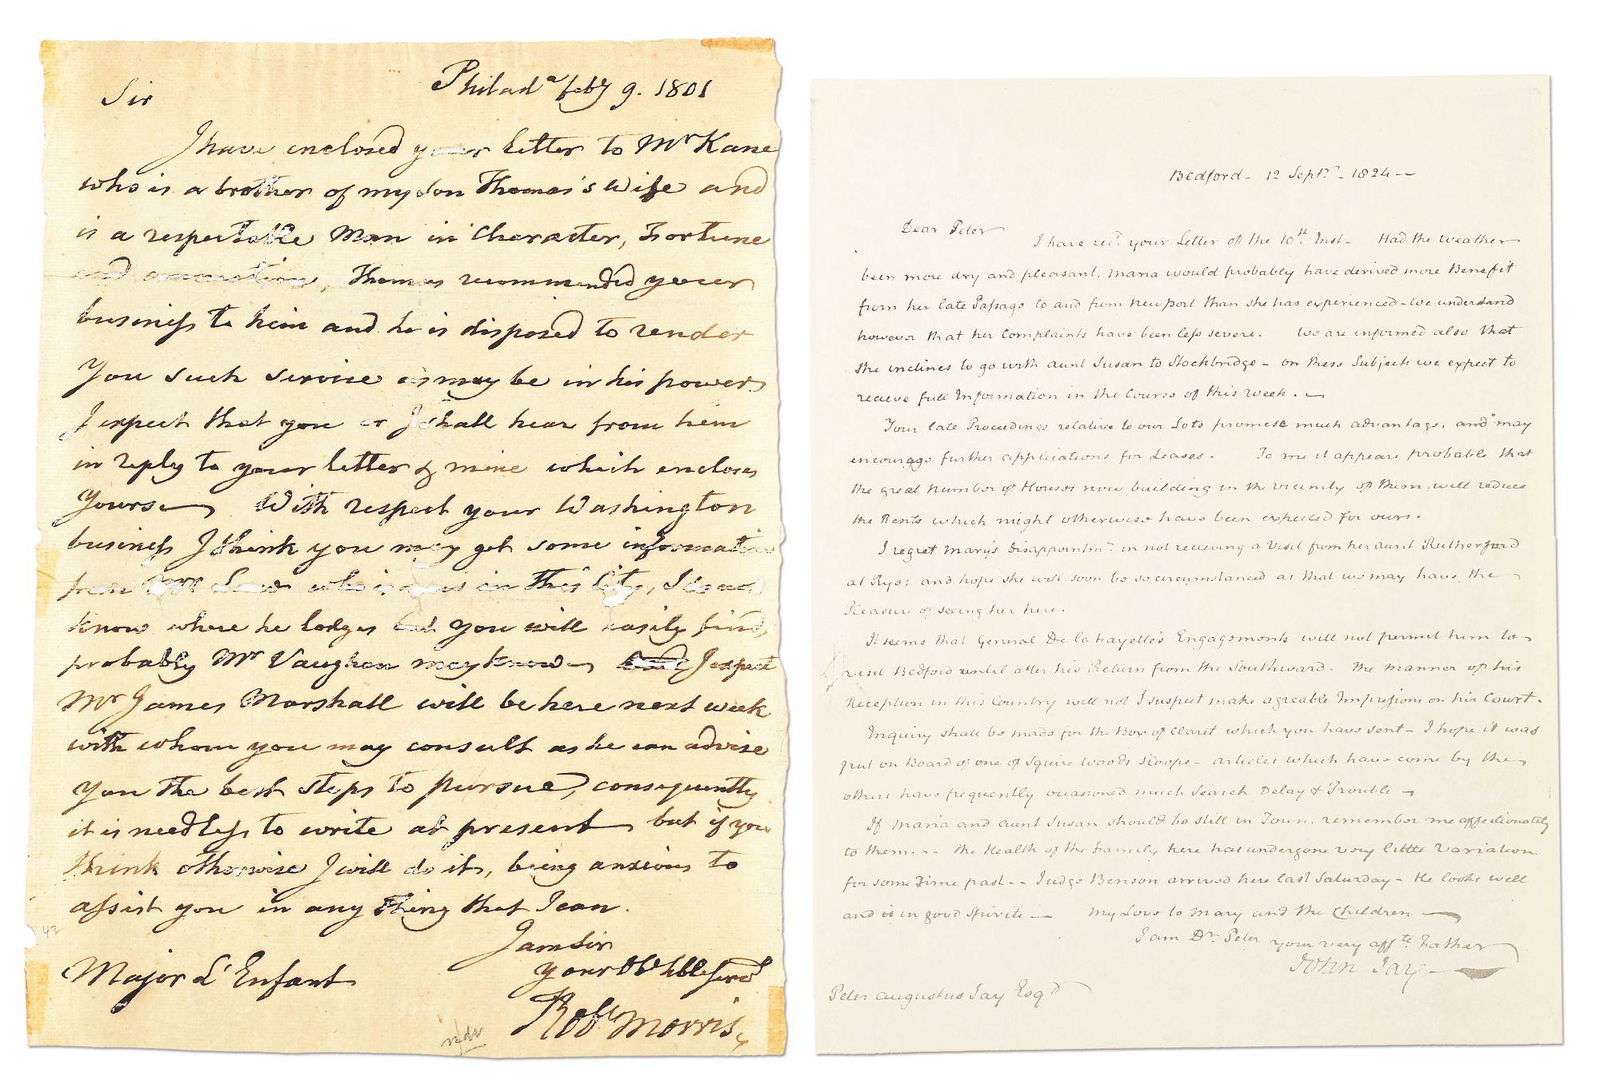 Sir
Philad.a feby 9. 1801
I have enclosed your letter to Mr Kane
who is a brother of my Son Thomas's Wife and
is a respectable Man in Character, Fortune
and connection, Thomas recommended your
business to him and he is disposed to render
You such service as may be in his power,
I expect that you or I shall hear from him
in reply to your letter & mine which encloses
Yours— With respect your Washington
business I think you may get some information
from Mr Law who is now in this City, I do not
know where he lodges but you will easily find,
probably Mr Vaughan may know— I expect
Mr James Marshall will be here next week
with whom you may consult as he can advise
you the best steps to pursue, consequently
it is needless to write at present but if you
think otherwise I will do it, being anxious to
assist you in any Thing that I can.
I am Sir
your Obt hble servt
Robt Morris,
Major L'Enfant
42
Bedford - 12 Septr. - 1824 —
Dear Peter
I have recd. your Letter of the 10th Inst - Had the weather
been more dry and pleasant, Maria would probably have derived more Benefit
from her late Passage to and from New port than she has experienced - we understand
however that her Complaints have been less severe. We are informed also that
she inclines to go with aunt Susan to Stockbridge - on these Subjects we expect to
recieve full Information in the Course of this Week. —
Your late Proceedings relative to our Lots promise much advantage, and may
encourage further applications for Leases. To me it appears probable that
the great number of Houses now building in the vicinity of them, will reduce
the Rents which might otherwise have been expected for ours.
I regret Mary's Disappointmt. in not recieving a Visit from her aunt Rutherford
at Rye; and hope she will soon be so circumstanced as that we may have the
Pleasure of seeing her here.
It seems that General De la Fayette's Engagements will not permit him to
visit Bedford until after his Return from the Southward. The manner of his
Reception in this Country will not I suspect make agreable Impressions on his Court.
Inquiry shall be made for the Box of Claret which you have sent - I hope it was
put on Board of one of Squire Woods Sloops - articles which have come by the
others have frequently occasioned much Search Delay & Trouble —
If Maria and aunt Susan should be still in Town, remember me affectionately
to them. -- The Health of the Family here has undergone very little Variation
for some Time past -- Judge Benson arrived here last Saturday - He looks well
and is in good Spirits — My Love to Mary and the Children —
I am Dr. Peter your very afft. Father
John Jay —
Peter Augustus Jay Esqr